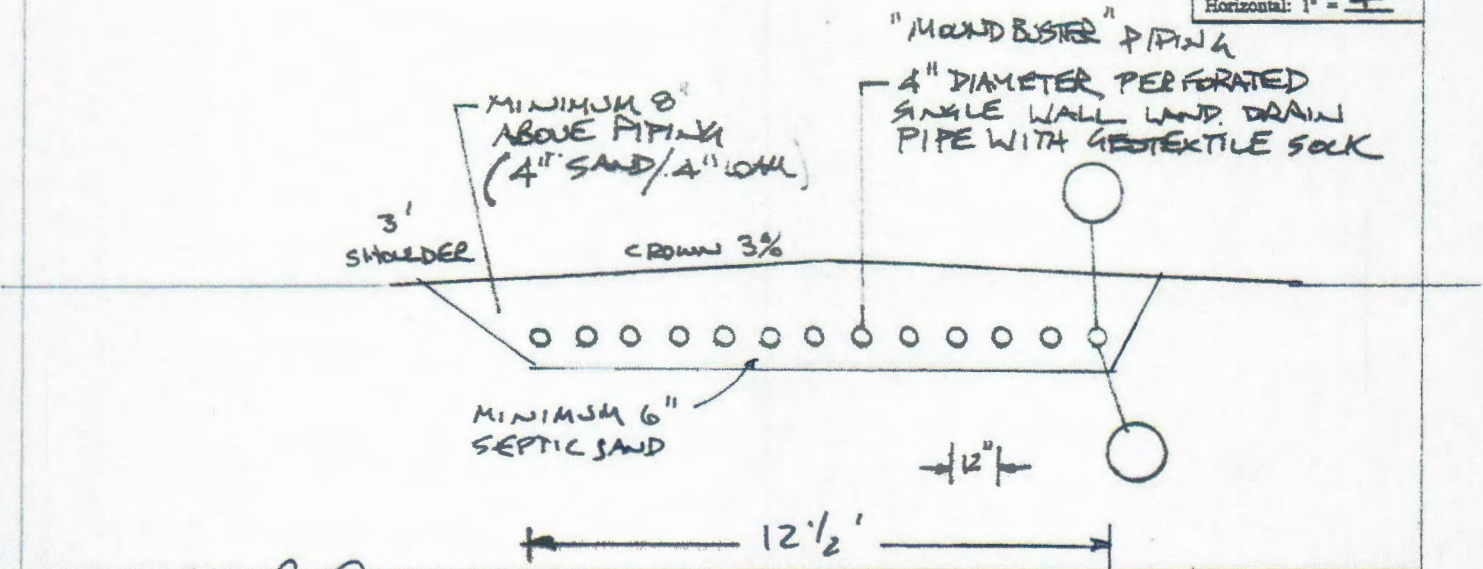 Horizontal: 1" =
"MOUND BUSTER" PIPING
4" DIAMETER PERFORATED
SINGLE WALL LAND. DRAIN
PIPE WITH GEOTEXTILE SOCK
MINIMUM 8"
ABOVE PIPING
(4" SAND/4" LOAM)
3'
SHOULDER
CROWN 3%
MINIMUM 6"
SEPTIC SAND
12"
12 1/2'